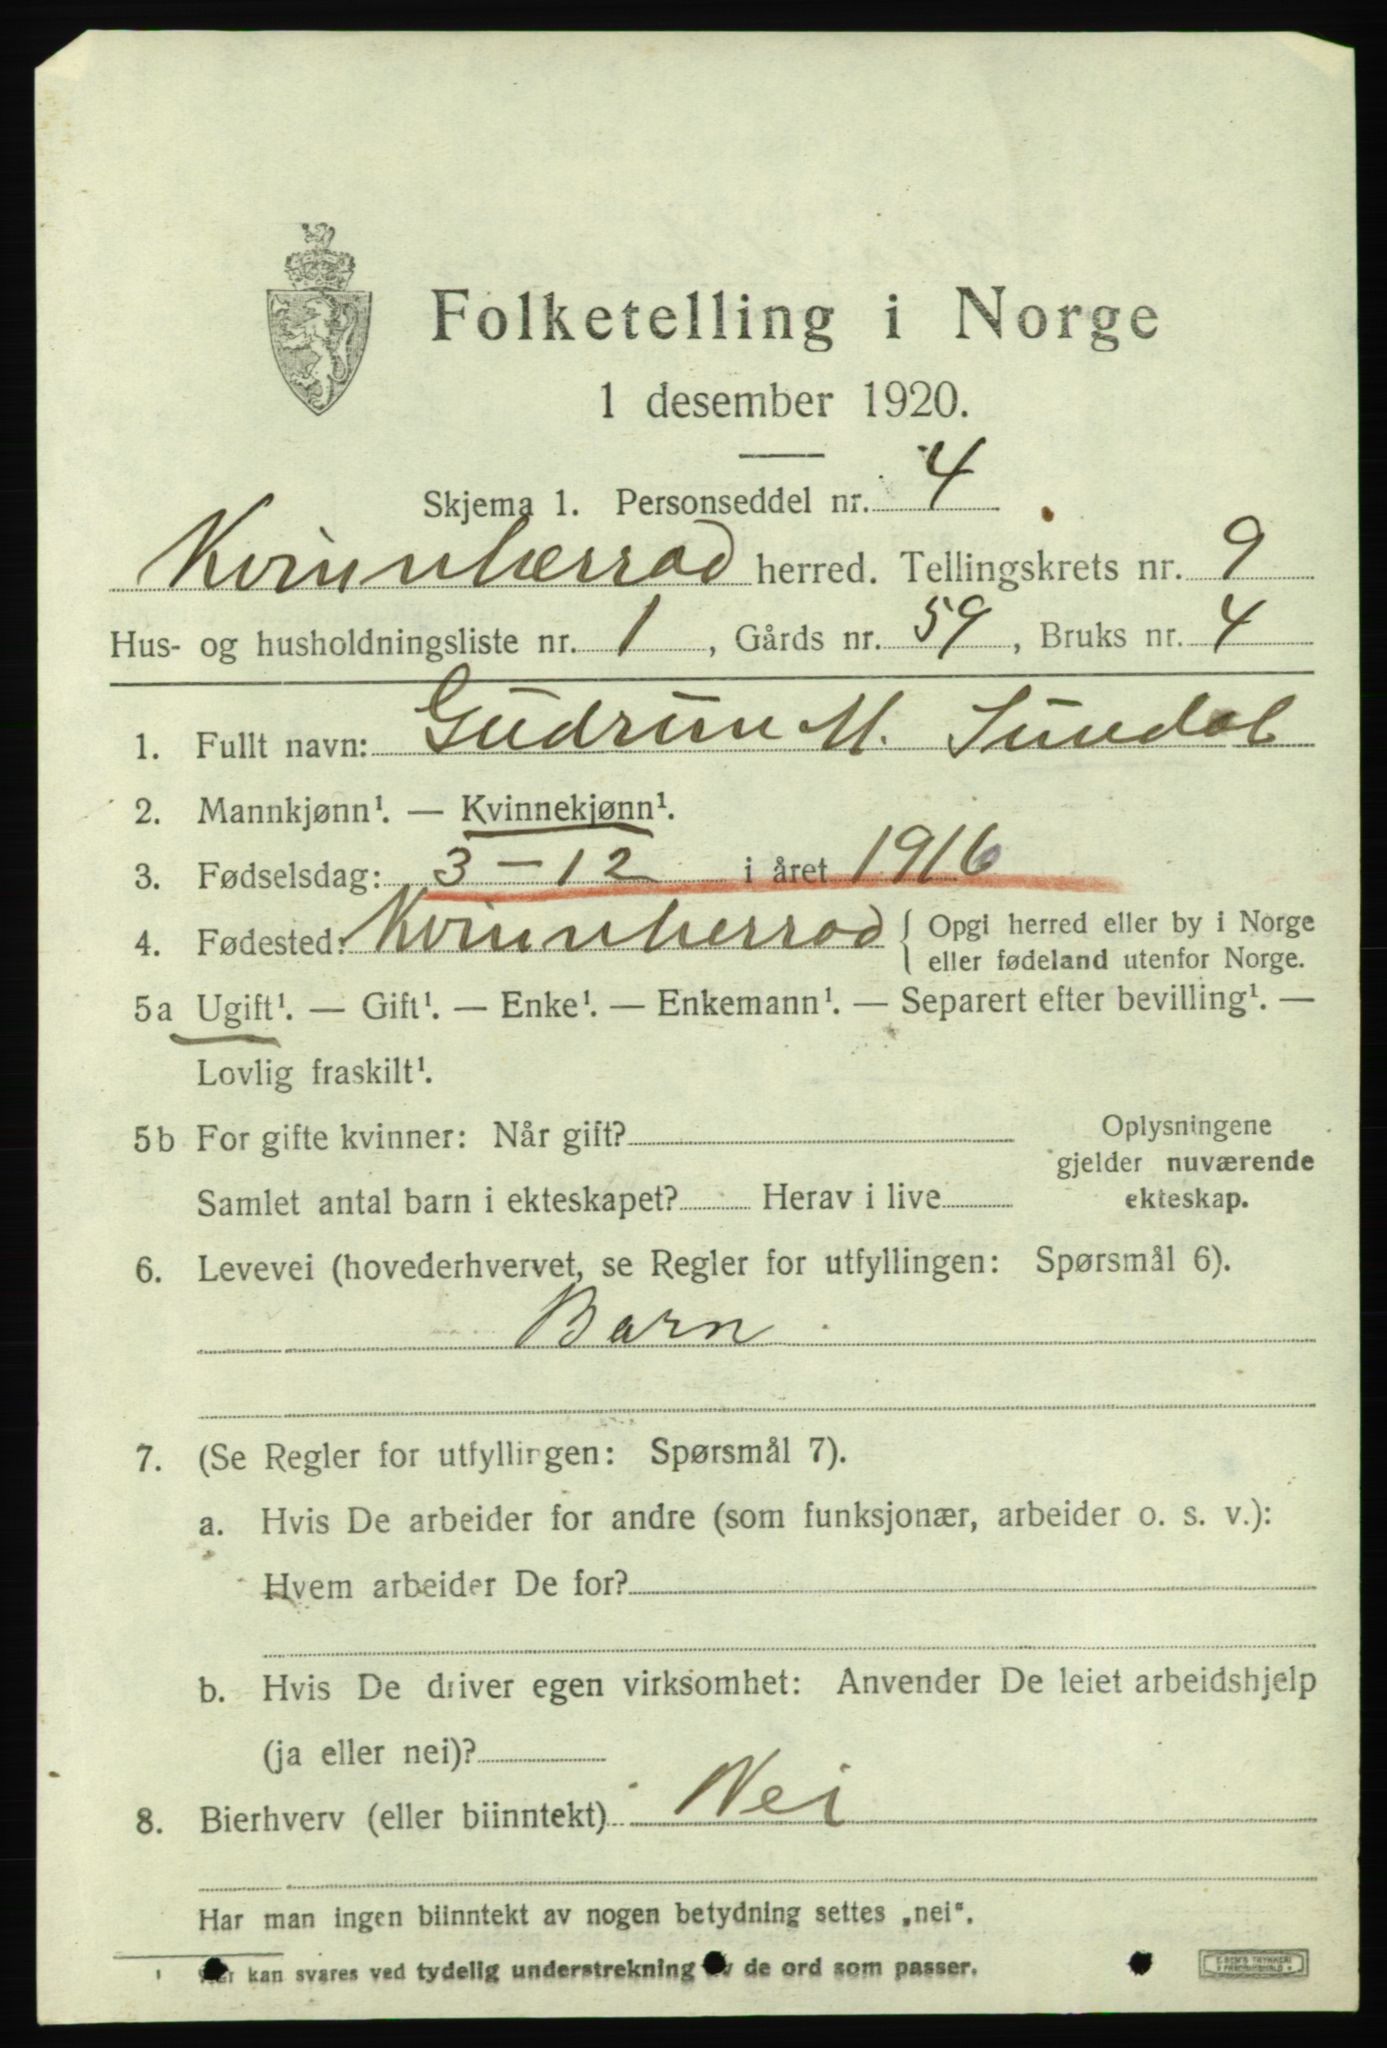 Folketelling i Norge
1 desember 1920.
Skjema 1. Personseddel nr. 4
Kvinnherrad herred. Tellingskrets nr. 9
Hus- og husholdningsliste nr. 1, Gårds nr. 59, Bruks nr. 4
1. Fullt navn: Gudrun M. Sundal
2. Mannkjønn¹. — Kvinnekjønn¹.
3. Fødselsdag: 3 – 12 i året 1916
4. Fødested: Kvinnherrad { Opgi herred eller by i Norge
eller fødeland utenfor Norge.
5a Ugift¹. — Gift¹. — Enke¹. — Enkemann¹. — Separert efter bevilling¹. —
Lovlig fraskilt¹.
5b For gifte kvinner: Når gift?
Samlet antal barn i ekteskapet? Herav i live
Oplysningene
gjelder nuværende
ekteskap.
6. Levevei (hovederhvervet, se Regler for utfyllingen: Spørsmål 6).
Barn
7. (Se Regler for utfyllingen: Spørsmål 7).
a. Hvis De arbeider for andre (som funksjonær, arbeider o. s. v.):
Hvem arbeider De for?
b. Hvis De driver egen virksomhet: Anvender De leiet arbeidshjelp
(ja eller nei)?
8. Bierhverv (eller biinntekt) Nei
Har man ingen biinntekt av nogen betydning settes „nei“.
¹ Her kan svares ved tydelig understrekning av de ord som passer.